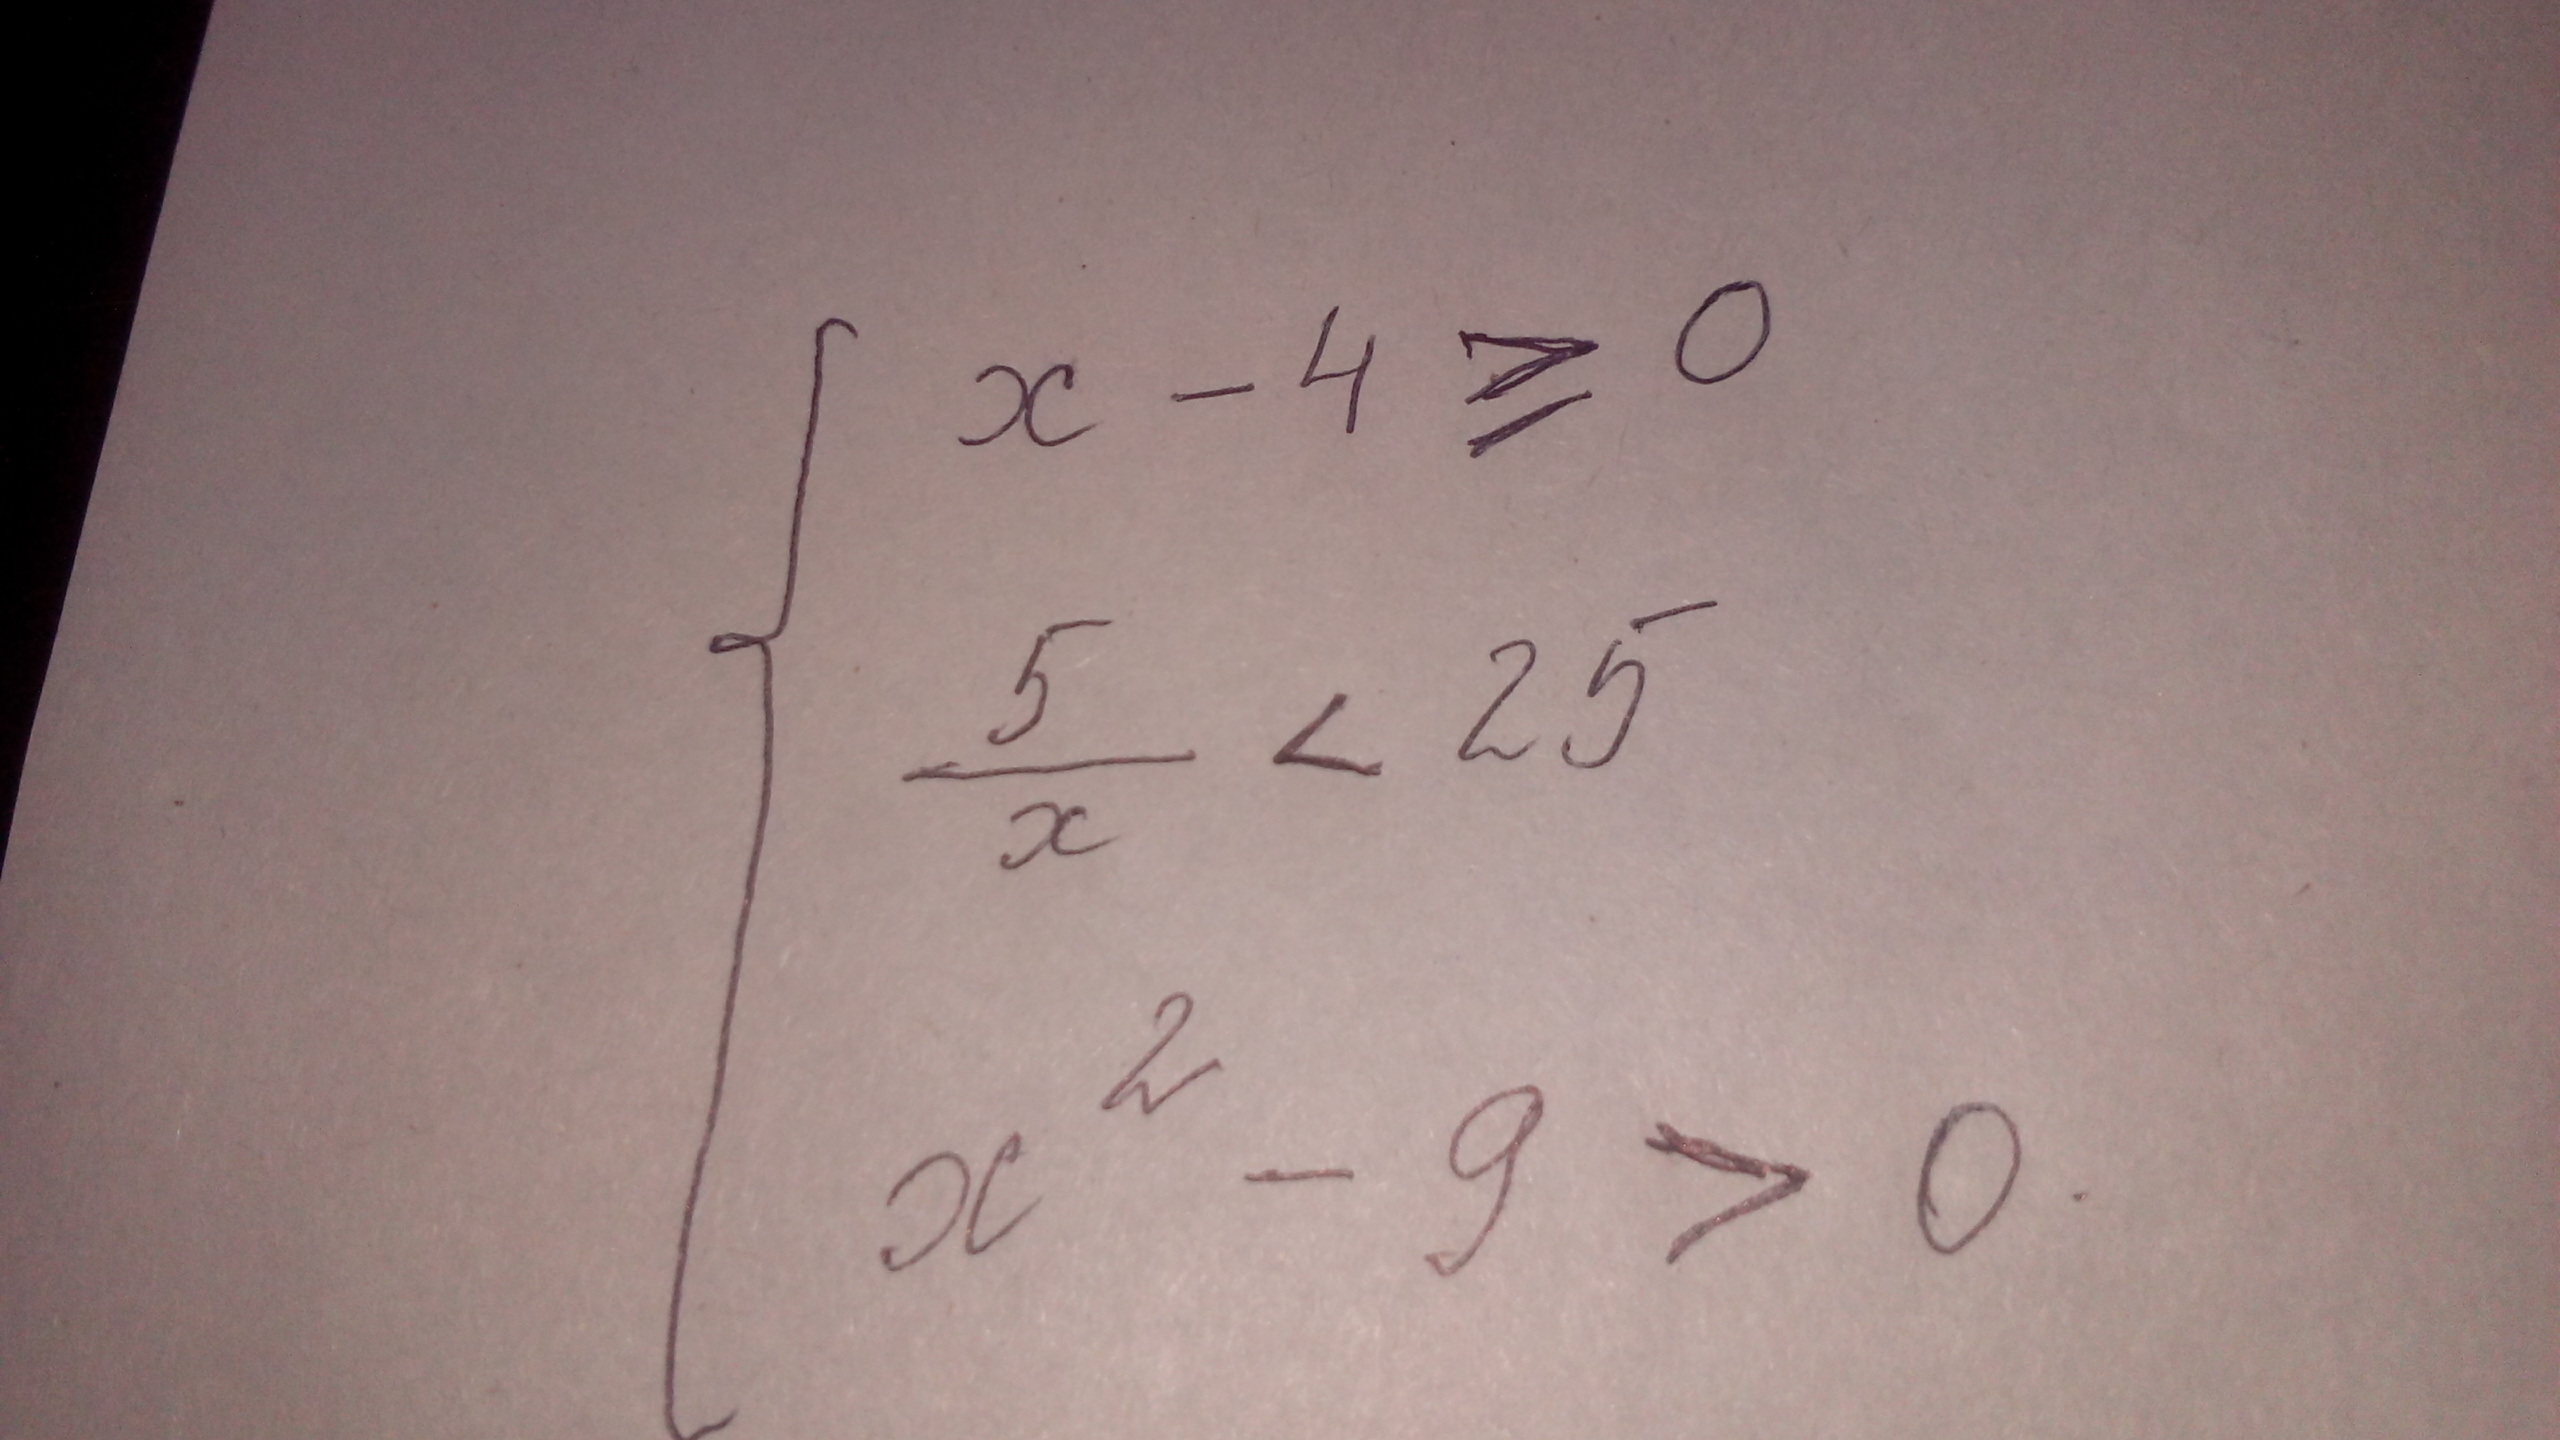 x - 4 ⩾ 0
5/x < 25
x² - 9 > 0.